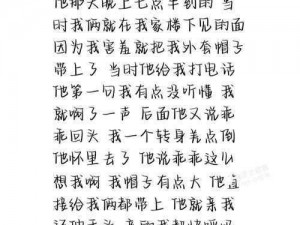 他那天晚上七点半到的 当
时我俩就在我家楼下见的面
因为我害羞就把我外套帽子
带上了 当时他给我打电话
他第一句我有点没听懂 我
就啊了一声 后面他又说乖
乖回头 我一个转身差点倒
他怀里去了 他说乖乖这么
想我啊 我帽子有点大 他直
接给我俩都带上 他就亲我